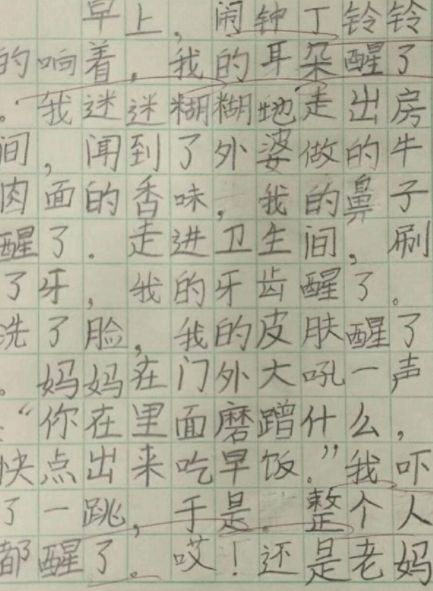 早上，闹钟丁铃铃
的响着，我的耳朵醒了
。我迷迷糊糊地走出房
间，闻到了外婆做的牛
肉面的香味，我的鼻子
醒了．走进卫生间，刷
了牙，我的牙齿醒了。
洗了脸，我的皮肤醒了
。妈妈在门外大吼一声
：“你在里面磨蹭什么，
快点出来吃早饭．”我吓
了一跳，于是．整个人
都醒了。哎！还是老妈